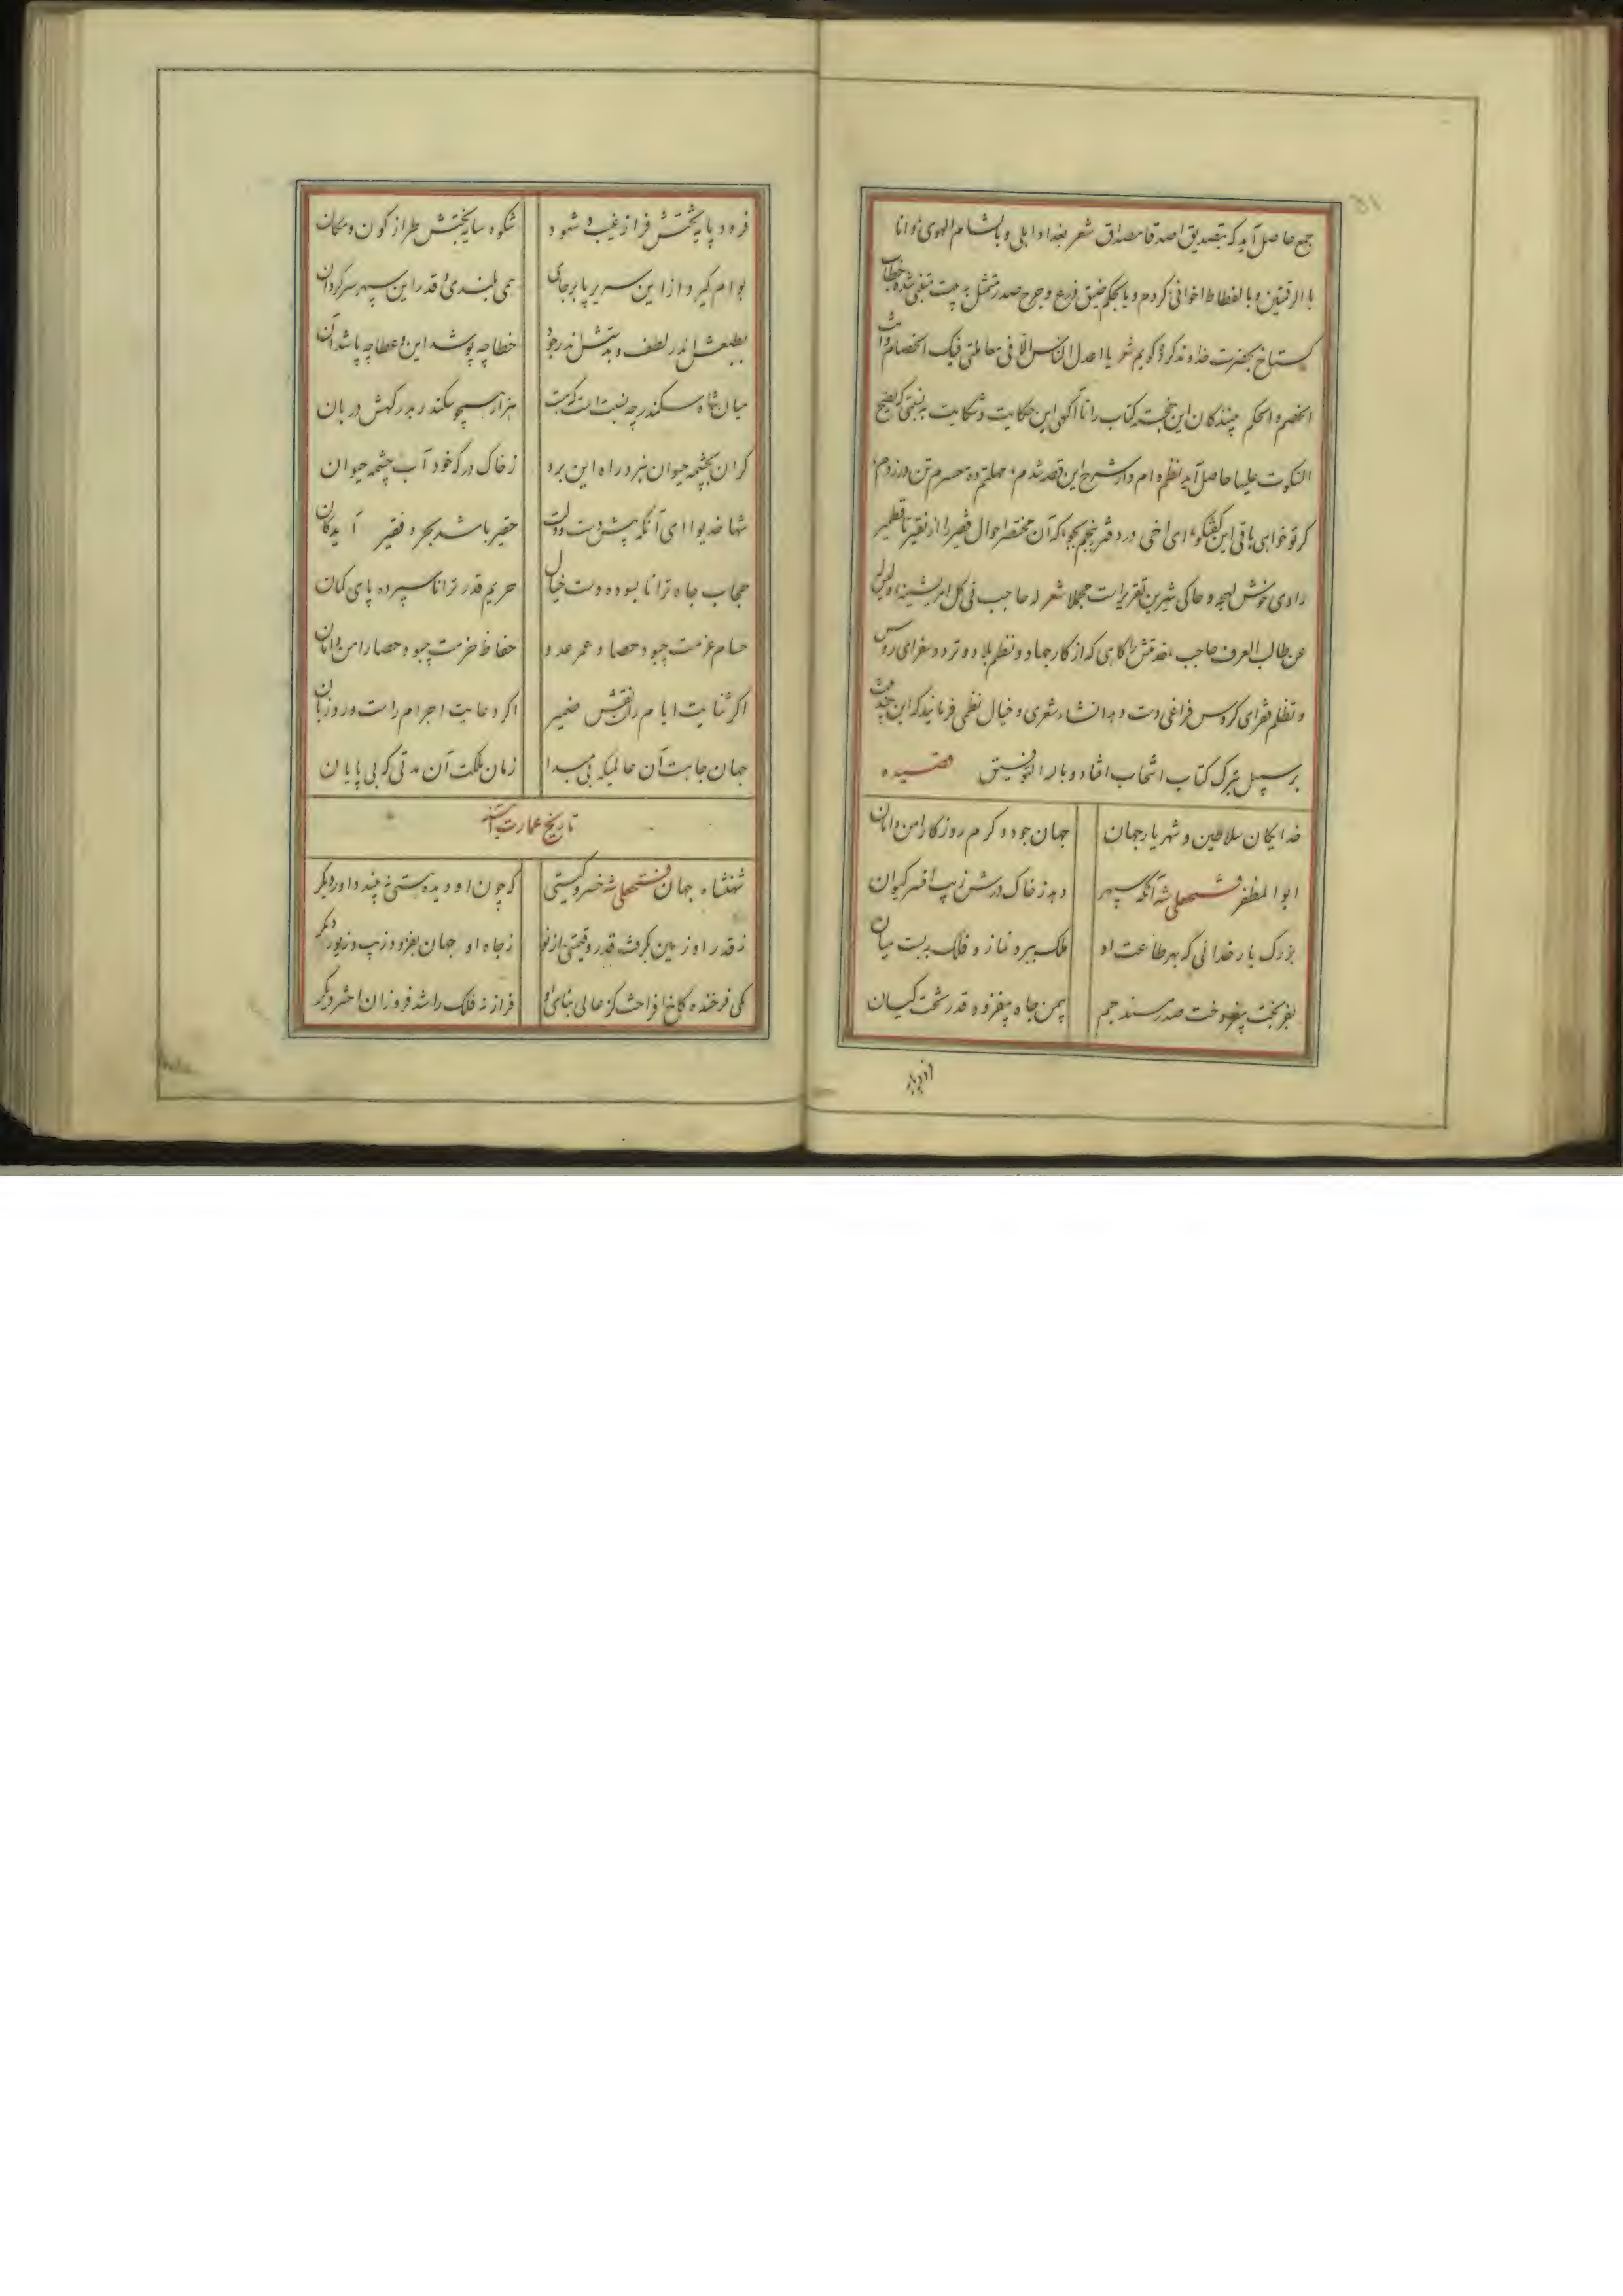 جمع حاصل آید که بتصدیق اصدقا مصداق شعر ببغداد اهلی و بالشام الهوی و انا
بالرقمتین و بالفسطاط اخوانی کردم و یا بحکم ضیق ذرع و جرح صدر متمثل به بیت متنبی شده خطاب
کستاخ بحضرت خداوندکار کویم شعر یا اعدل الناس الا فی معاملتی فیک الخصام وانت
الخصم والحکم بینندکان این خجسته کتاب را تا آکهی این حکایت و شکایت به نسقی که یصح
السکوت علیها حاصل آید نظم وام دار شرح این قصه شدم مهلتم ده محرم تن در زدم
کر تو خواهی باقی این کفتکو ای اخی در دفتر پنجم بجو که آن مختصر احوال فقیر را از نقیر تا قطمیر
راوی خوش لهجه و حاکی شیرین تقریرات مجملا شعر له حاجب فی کل امر یشینه ولیس له
عن طالب العرف حاجب خدمتش را کاهی که از کار جهاد و نظم بلاد و تردد سفرای روس
و تظلم فقرای کروس فراغی دست دهد انشاء شعری و خیال نظمی فرمایند که این چند بیت
بر سبیل تبرک کتاب انتخاب افتاد و بالله التوفیق قصیده
خدایکان سلاطین و شهریار جهان جهان جود و کرم روزکار امن و امان
ابوالمظفر فتحعلی شه آنکه سپهر دهد ز خاک درش زیب افسر کیوان
بزرک بار خدائی که بهر طاعت او ملک ببرد نماز و فلک ببست میان
بفر بخت بیفروخت صدر مسند جم بیمن جاه بیفزود قدر تخت کیان
فرود پایه تختش فراز غیب و شهود شکوه سایه بختش طراز کون و مکان
بوام کیرد از این سریر پا برجای همی بلندی و قدر این سپهر سرکردان
بطبعش اندر لطف و بدستش اندر جود خطا چه پوشد این و عطا چه پاشد آن
میان شاه و سکندر چه نسبت است که هست هزار همچو سکندر بدرکهش دربان
کر آن بچشمه حیوان نبرد راه این برد ز خاک درکه خود آب چشمه حیوان
شها خدیوا ای آنکه پیش دست و دلت حقیر باشد بحر و فقیر آید کان
حجاب جاه ترا نا بسوده دست خیال حریم قدر ترا ناسپرده پای کمان
حسام عزمت چبود حصاد عمر عدو حفاظ حزمت چبود حصار امن و امان
اکر ثنایت ایام راست نقش ضمیر اکر دعایت اجرام راست ورد زبان
جهان جاهت آن عالمیکه بی مبدا زمان ملکت آن مدتی که بی پایان
تاریخ عمارت
شهنشاه جهان فتحعلی شه خسرو کیتی که چون او دیده هستی نه بیند داور دیکر
ز قدر او زمین بکرفت قدر و قیمتی از نو ز جاه او جهان بفزود زیب و زیور دیکر
یکی فرخنده کاخ افراخت کز عالی بنای او فراز نه فلک را شد فروزان اختر دیکر
فرود پایه